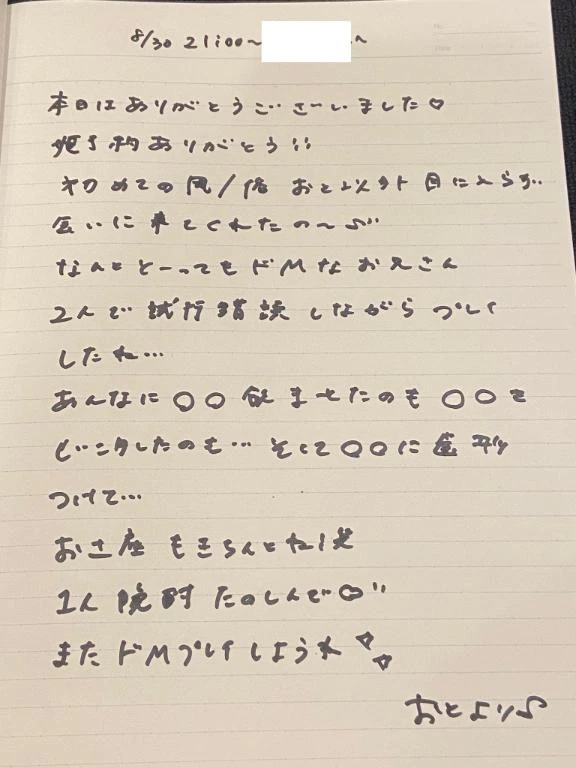 8/30 21:00〜 〜
本日はありがとうございました♡
予約ありがとう!!
初めての風/俗 おと以外目に入らず..
会いに来てくれたの〜♪"
なんととーってもドMなお兄さん
2人で試行錯誤しながらプレイ
したね…
あんなに〇〇飲ませたのも〇〇を
ビンタしたのも… そして〇〇に歯形
つけて…
お土産もきちんとね!笑
1人晩酌たのしんで♡"
またドMプレイしようね
おとより♪